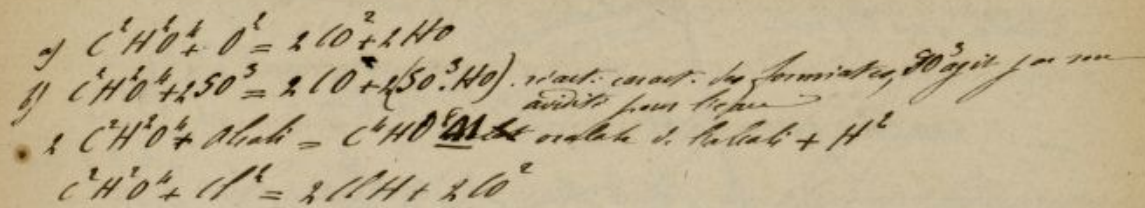 a) C²H²O⁴ + O² = 2 CO² + 2 HO
b) C²H²O⁴ + 2 SO³ = 2 CO + 2(SO³.HO). réact. caract. des formiates, SO³ agit par son
avidité pour l'eau
2 C²H²O⁴ + Alcali = C⁴HO⁸ oxalate de l'alcali + H²
C²H²O⁴ + Cl² = 2 ClH + 2 CO²